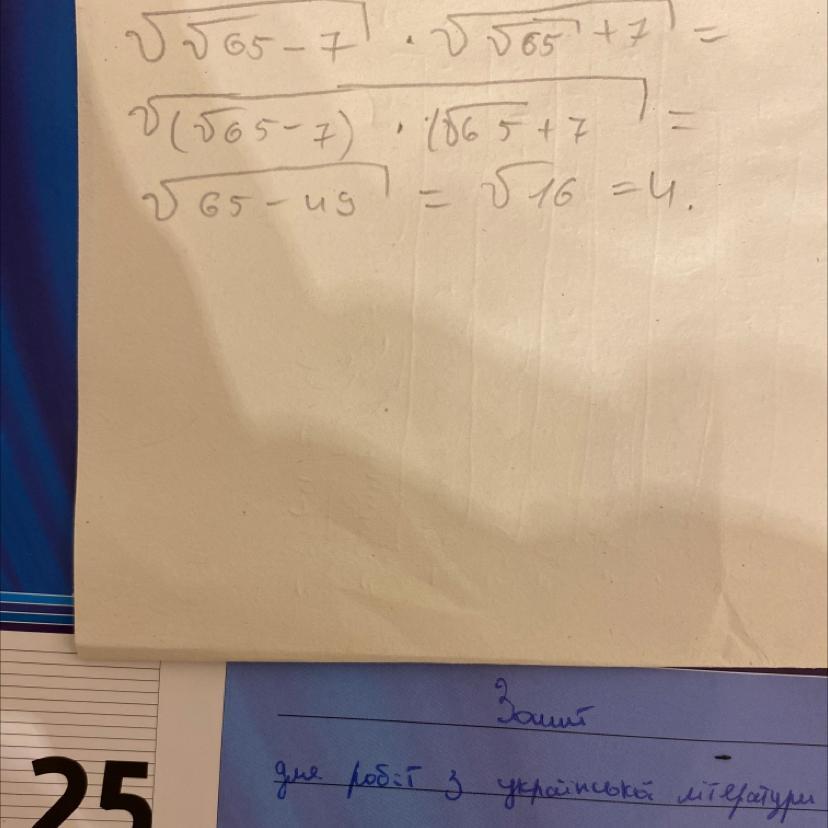 √(√65 - 7) · √(√65 + 7) =
√((√65 - 7) · (√65 + 7 =
√(65 - 49) = √16 = 4.
Зошит
для робіт з української літератури
25